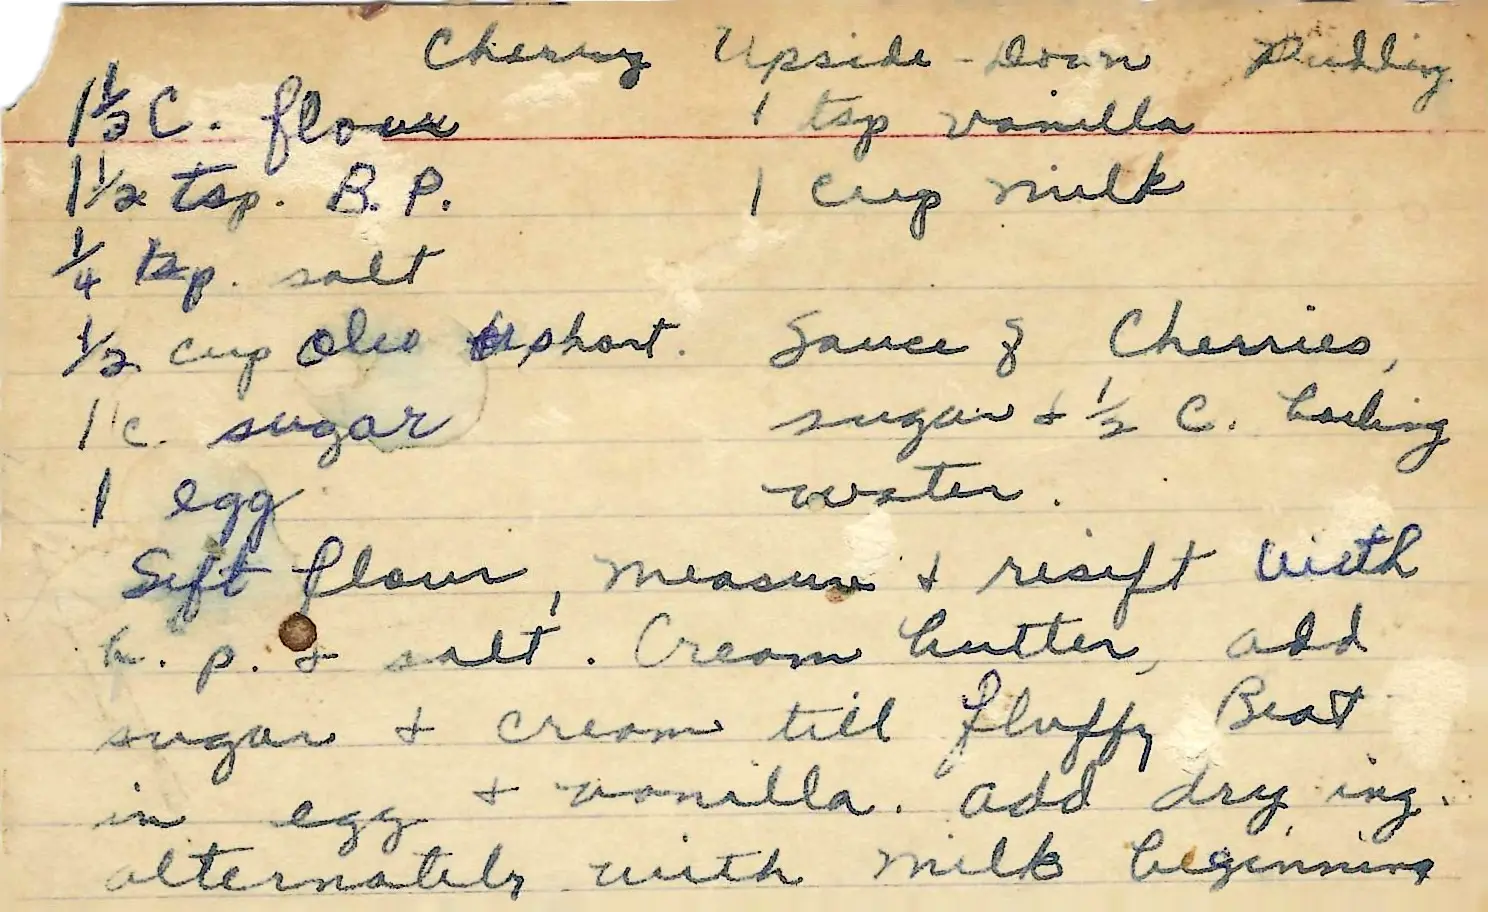 Cherry Upside-Down Pudding
1 1/2 C. flour
1 1/2 tsp. B.P.
1/4 tsp. salt
1/2 cup oleo short.
1 c. sugar
1 egg
1 tsp vanilla
1 cup milk
Sauce & Cherries,
sugar + 1/2 C. boiling
water.
Sift flour, measure + resift with
b. p. + salt. Cream butter, add
sugar + cream till fluffy Beat
in egg + vanilla. add dry ing.
alternately with milk beginning